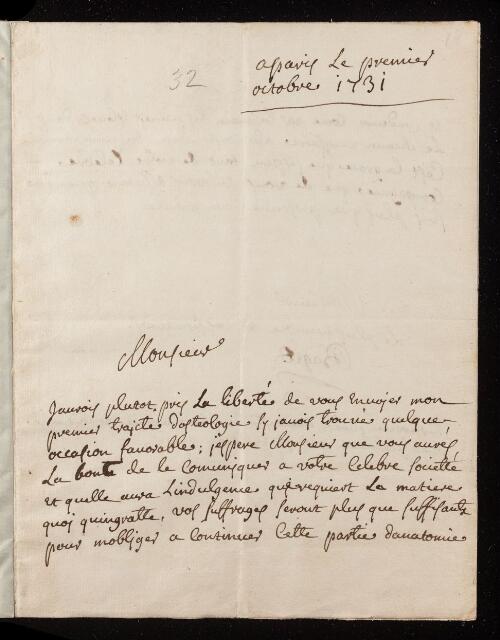 32
a paris Le premier
octobre 1731
Monsieur
Jaurois plutot pris La liberté de vous envoyer mon
premier trajeté dosteologie sy javois trouvé quelque
occasion favorable; jespere Monsieur que vous aurés
La bonté de le Comuniquer a votre Celebre societté
et quelle aura Lindulgence que requiert La matiere
quoi quingratte, vos suffrages seront plus que suffisants
pour mobliger a Continuer Cette partie danatomie